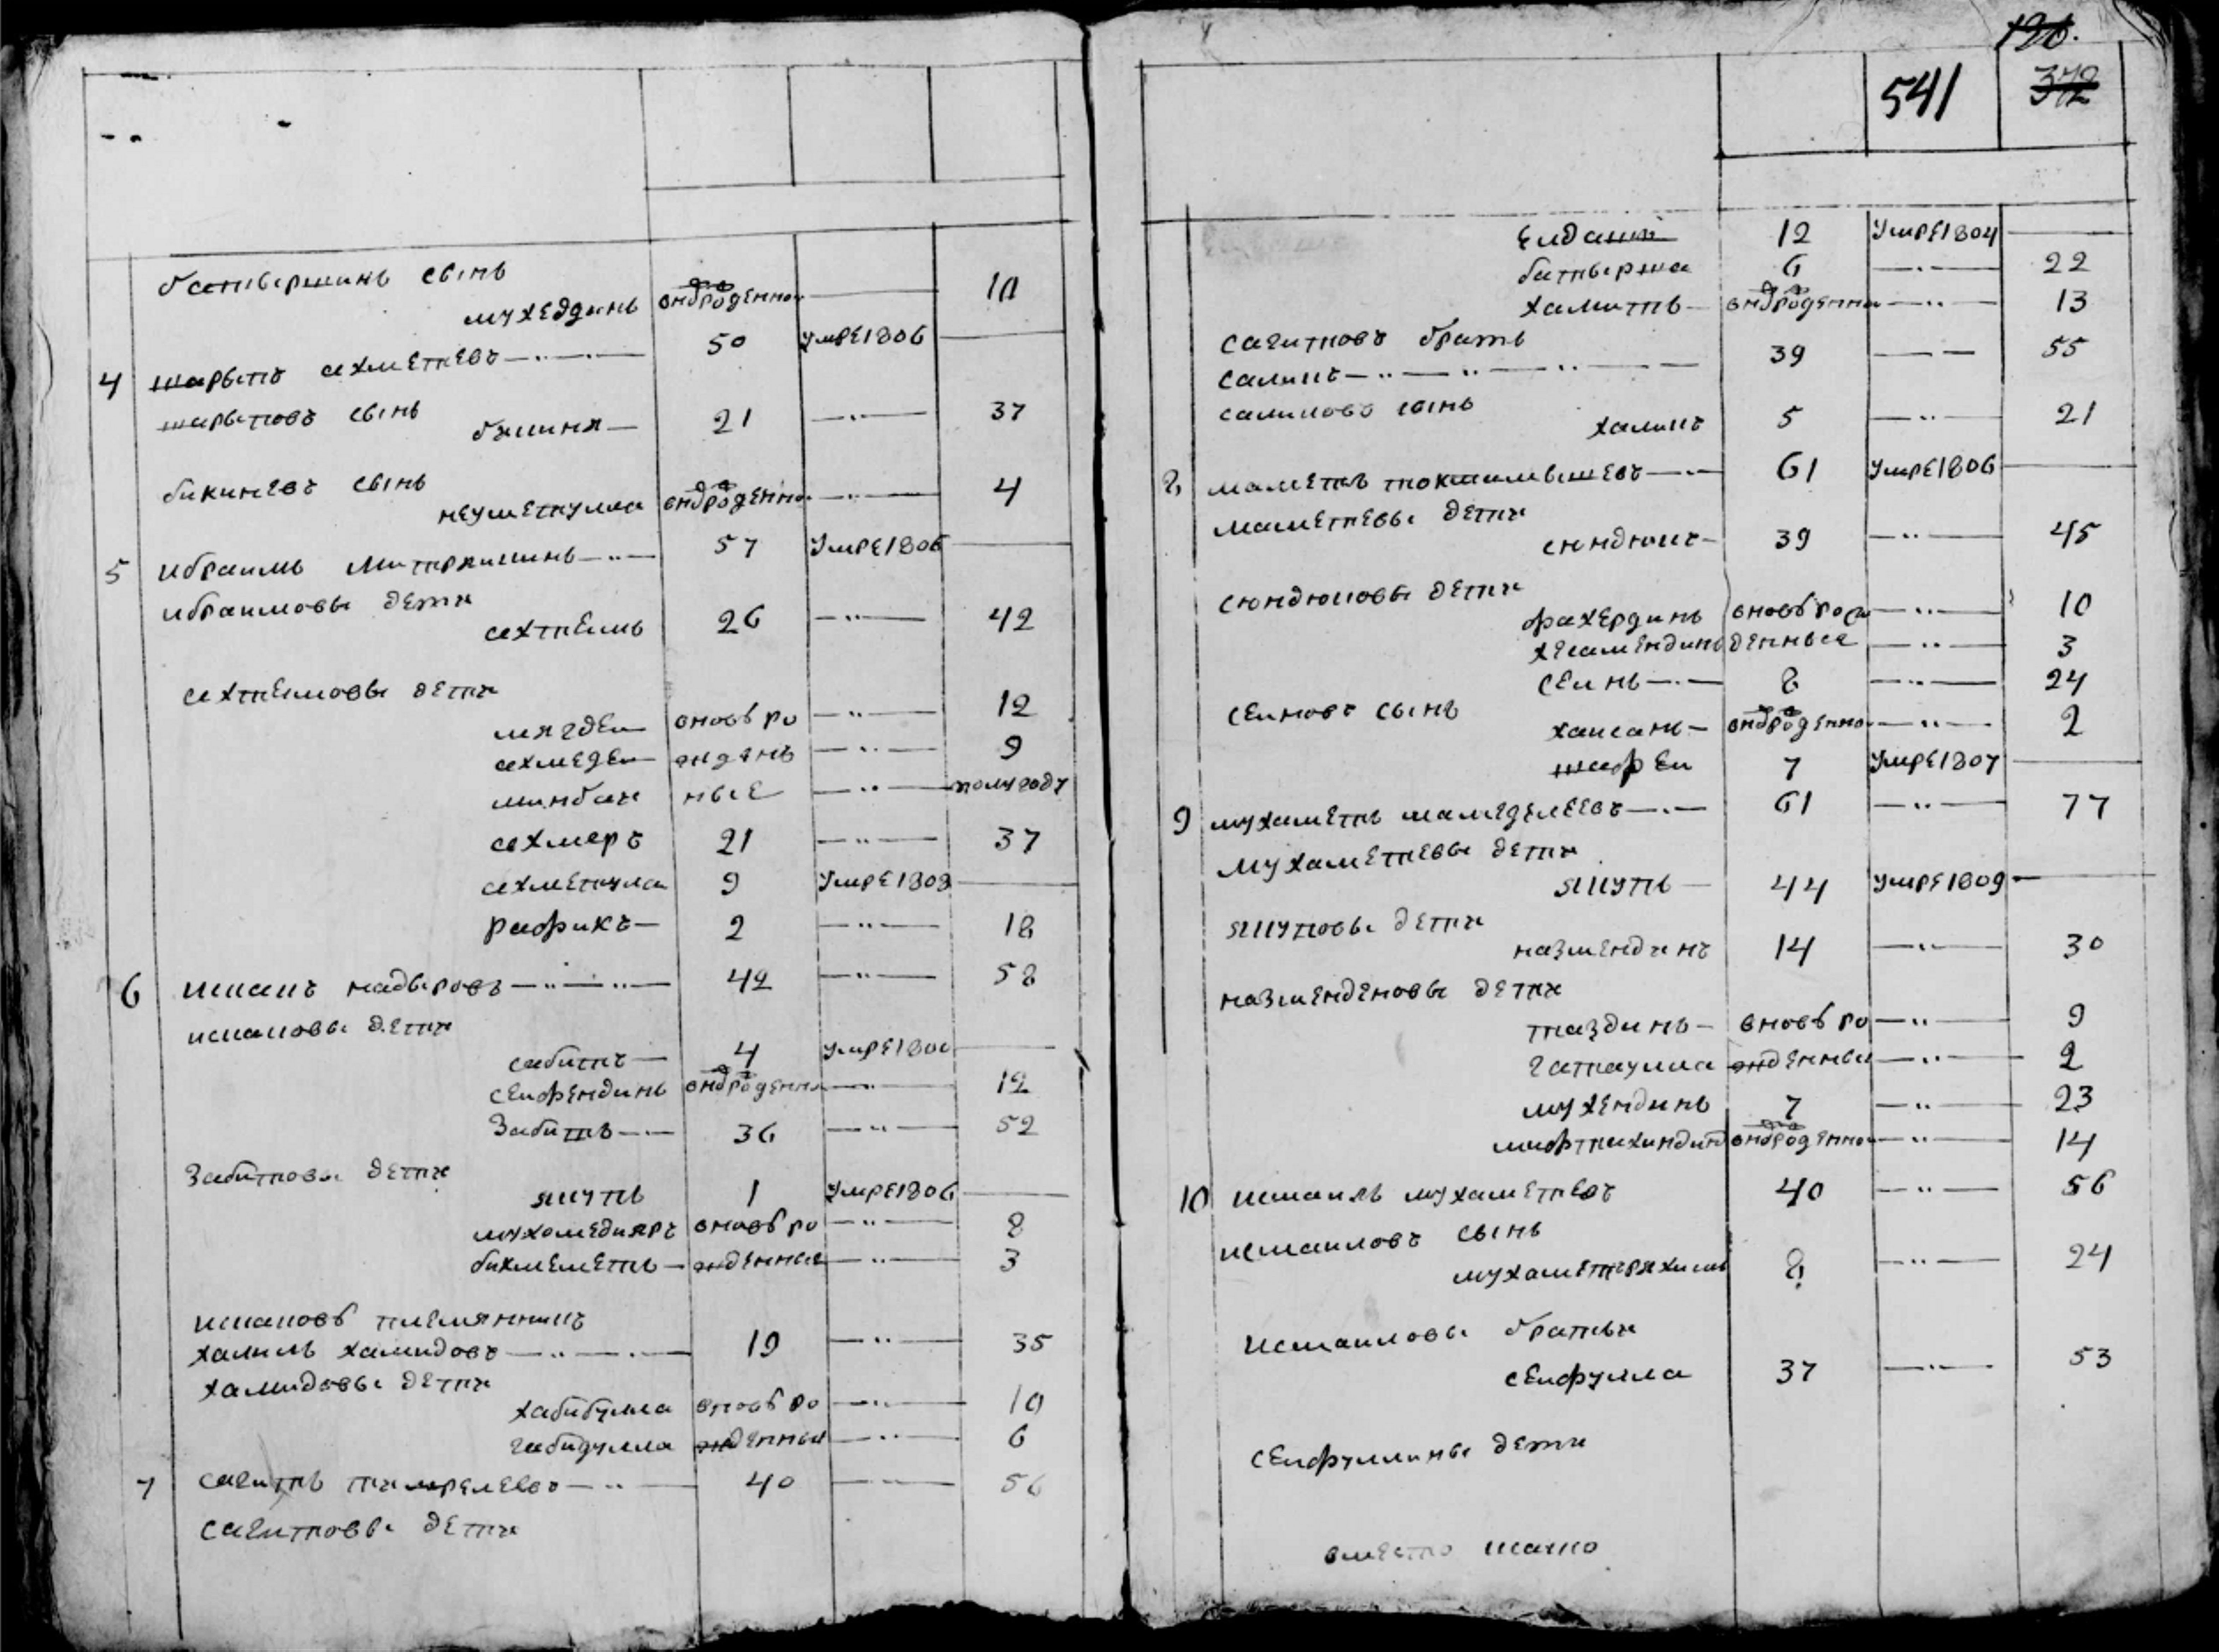 батыршинъ сынъ
мухеддинъ вновьрожденной 10
4 шарыпъ ахметевъ 50 умре 1806
шарыповъ сынъ
бикиня 21 37
бикиневъ сынъ
неуметулла вновьрожденной 4
5 ибраимъ 57 умре 1806
ибраимовы дети
ахтямъ 26 42
ахтямовы дети
мягдеи вновь ро 12
ахмедеи жден 9
минбаи ные полугоду
ахмеръ 21 37
ахметулла 9 умре 1808
рафикъ 2 18
6 исмаилъ надыровъ 42 58
дети
сабитъ 4 умре
сейфендинъ вновьрожденной 12
забитъ 36 52
забитовы дети
ягутъ 1 умре 1806
мухомедияръ вновь ро 8
бикмеметъ жденныя 3
племянникъ
халилъ хамидовъ 19 35
хамидовы дети
хабибулла вновь ро 10
габидулла жденныя 6
7 сагитъ 40 56
сагитовы дети
120.
541 372
елдашъ 12 умре 1804
батырша 6 22
хамитъ вновьрожденной 13
сагитовъ братъ
салихъ 39 55
салиховъ сынъ
халитъ 5 21
8 маметъ токтамышевъ 61 умре 1806
маметевы дети
сюндюкъ 39 45
сюндюковы дети
фахердинъ вновь рож 10
хесамендинъ денныя 3
сеинъ 8 24
сеиновъ сынъ
хасанъ вновьрожденной 2
шафеи 7 умре 1807
9 мухаметъ мамеделеевъ 61 77
мухаметевы дети
ягутъ 44 умре 1809
ягутовы дети
назмендинъ 14 30
назменденовы дети
таздинъ вновь ро 9
гатаулла жденныя 2
мухендинъ 7 23
мифтахиндинъ вновьрожденной 14
10 исмаилъ мухаметевъ 40 56
исмаиловъ сынъ
мухаметрахимъ 8 24
исмаиловы братья
сеифулла 37 53
сеифуллины дети
вместо